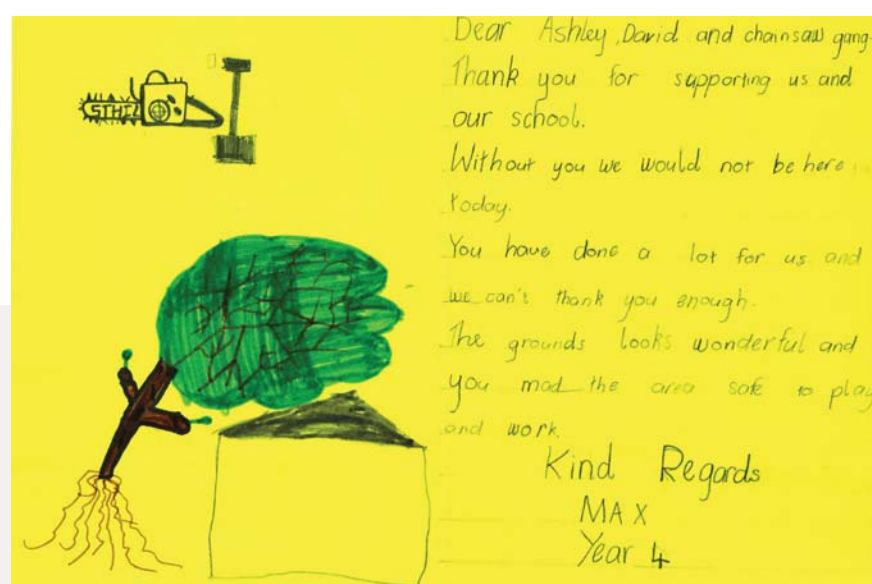 STIHL
Dear Ashley, David and chainsaw gang-
Thank you for supporting us and
our school.
Without you we would not be here
today.
You have done a lot for us and
we can't thank you enough.
The grounds looks wonderful and
you mad the area safe to play
and work.
Kind Regards
MAX
Year 4